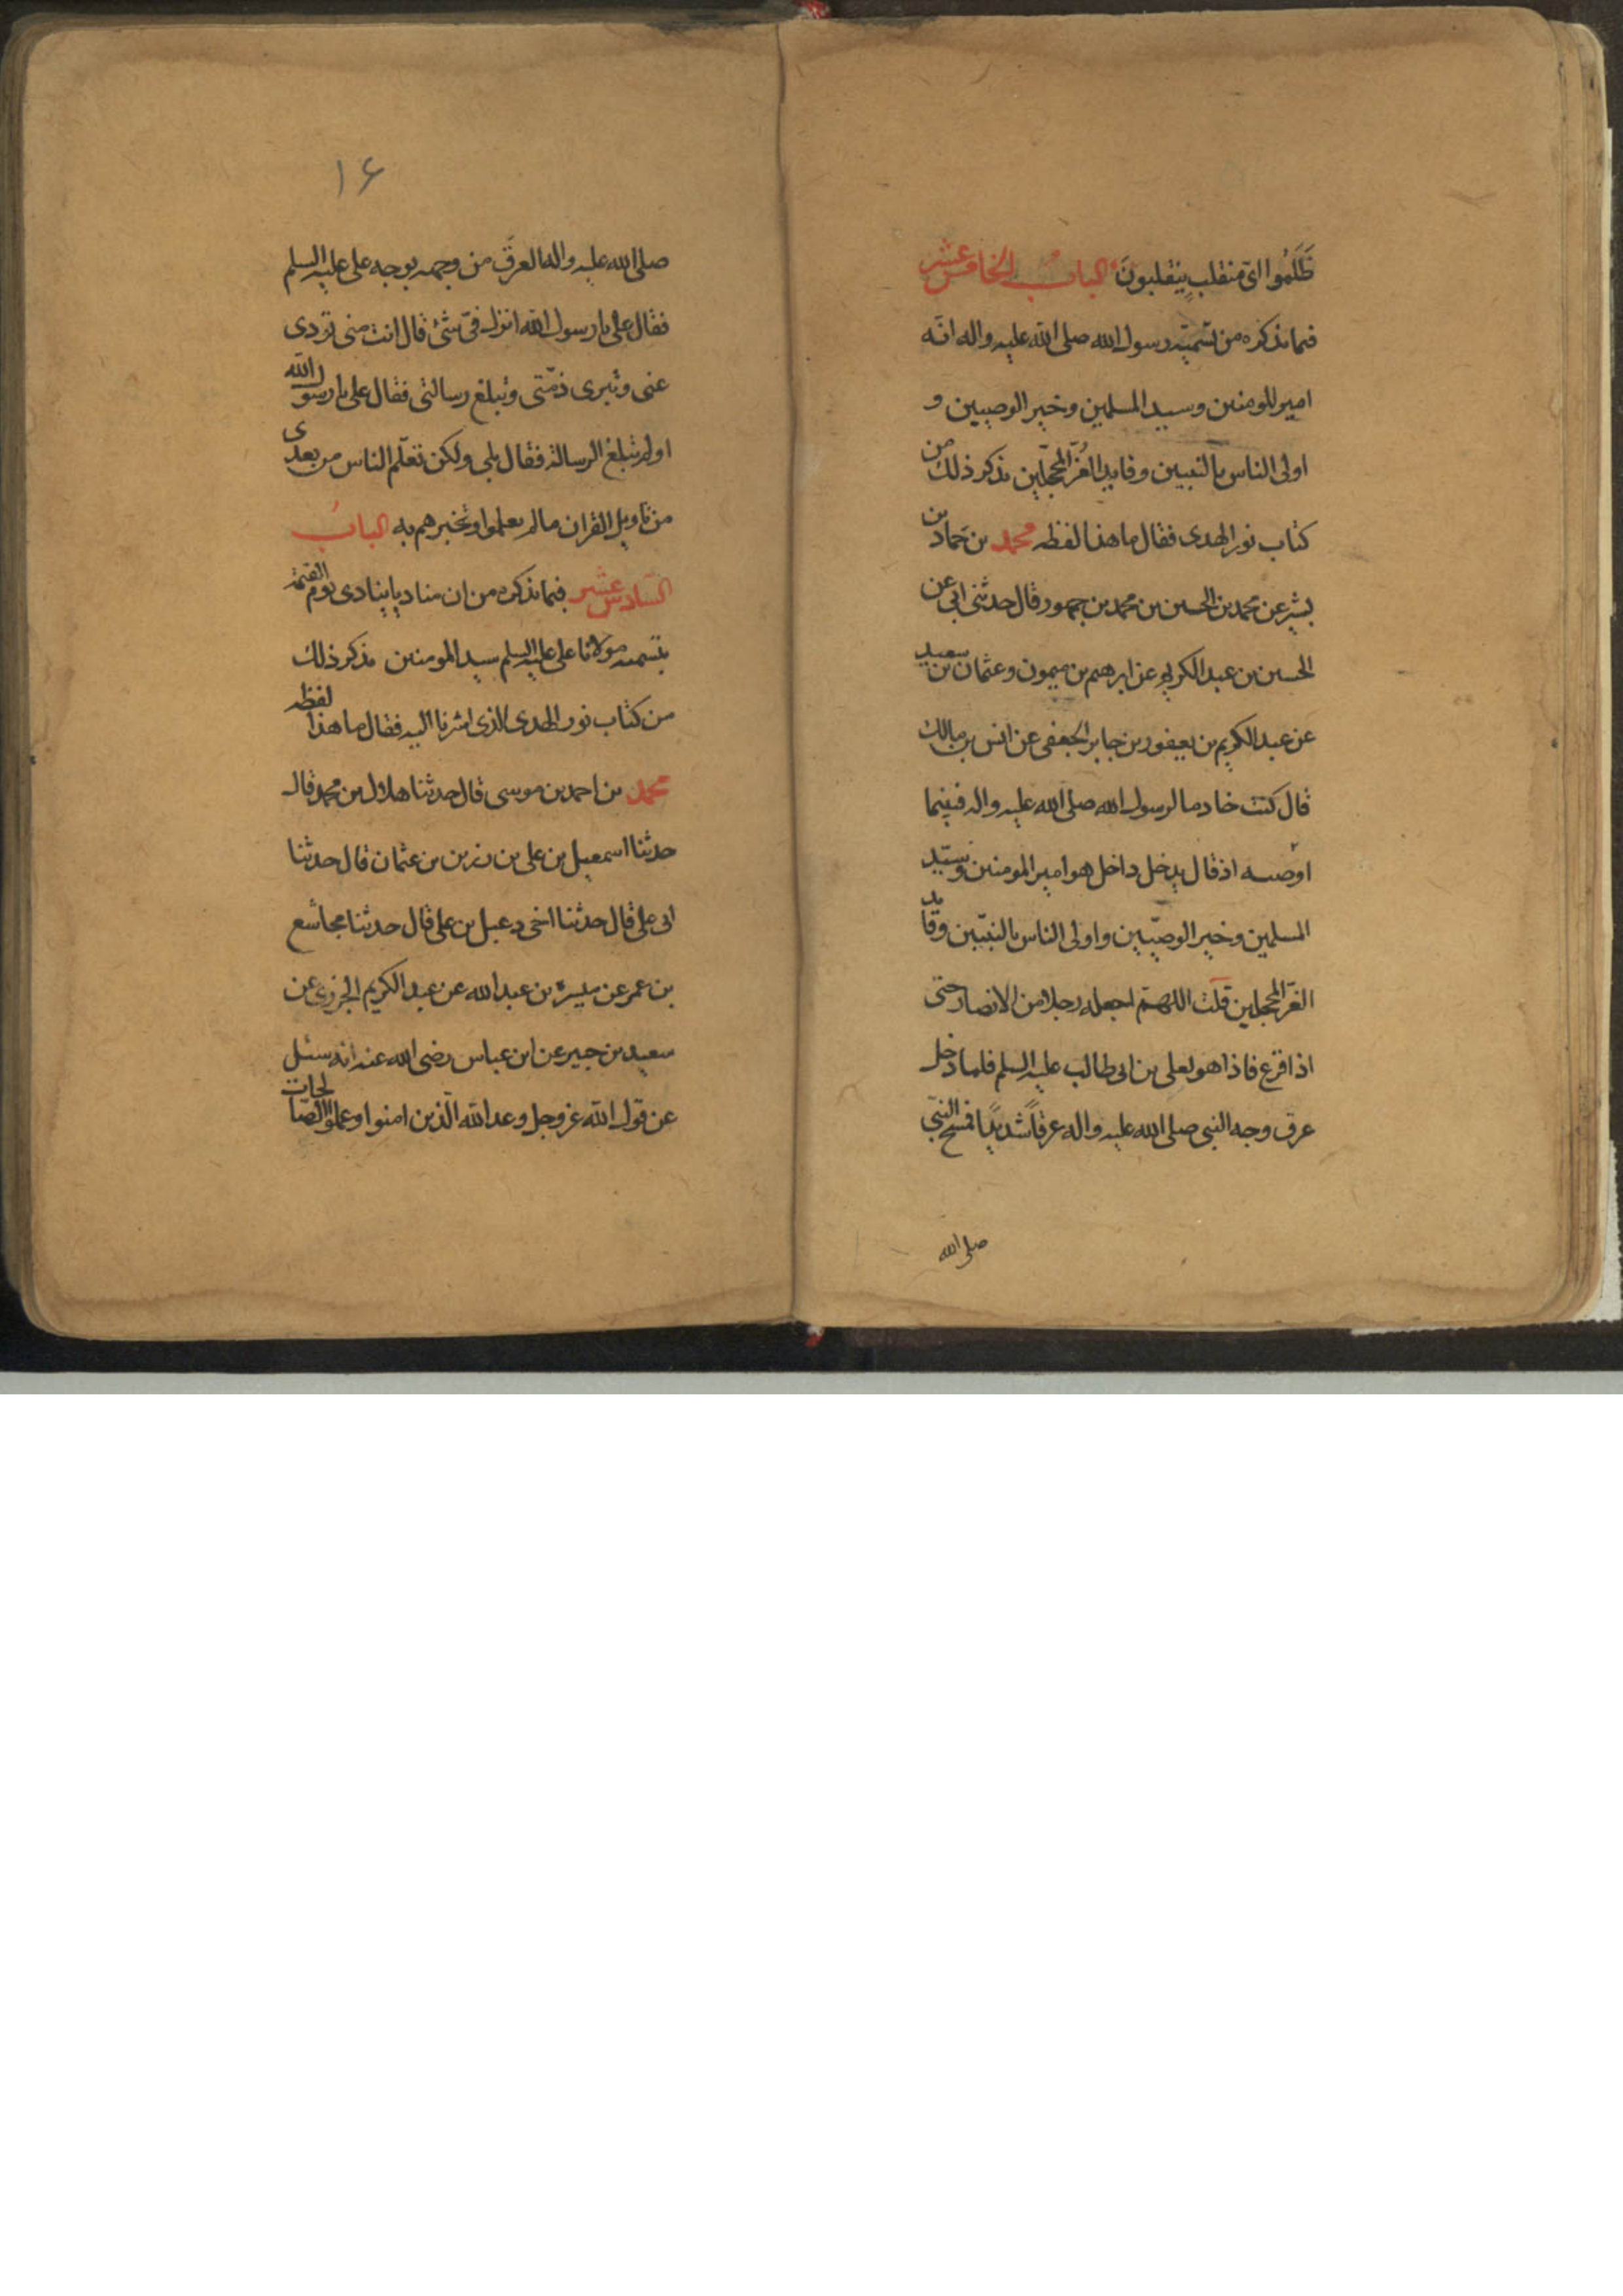 ظَلَمُوا اىّ منقلب ينقلبونَ البابُ الخامس عشر
فيما نذكره من تسميته رسول الله صلى الله عليه واله انّه
امير المومنين وسيد المسلمين وخير الوصيين و
اولى الناس بالنبيين وقايد الغُرّ المحجّلين نذكر ذلك من
كتاب نور الهدى فقال ما هذا لفظه محمد بن حمّاد بن
بشير عن محمد بن الحسين بن محمد بن جمهور قال حدثنى ابى عن
الحسين بن عبد الكريم عن ابرهيم بن ميمون وعثمان بن سعيد
عن عبد الكريم بن يعفور بن جابر الجعفى عن انس بن مالك
قال كنت خادما لرسول الله صلى الله عليه واله فبينما
اوضيه اذ قال يدخل داخل هو امير المومنين وسيّد
المسلمين وخير الوصيّين واولى الناس بالنبيّين وقايد
الغرّ المحجلين قلت اللهمّ اجعله رجلا من الانصار حتى
اذا قرع فاذا هو بعلى بن ابى طالب عليه السلم فلما دخل
عرق وجه النبى صلى الله عليه واله عرقاً شديدًا فمسح النبىّ
صلى الله
١۶
صلى الله عليه واله العرق من وجهه بوجه على عليه السلم
فقال على يا رسول الله انزل فىّ شئ قال انت منى تودى
عنى وتبرى ذمّتى وتبلغ رسالتى فقال على يا رسول الله
اولم تبلغ الرسالة فقال بلى ولكن تعلّم الناس من بعدى
من تاويل القران ما لم يعلموا وتخبرهم به البابُ
السّادس عشر فيما نذكره من ان مناديا ينادى يوم القيمة
بتسمية مولانا على عليه السلم سيد المومنين نذكر ذلك
من كتاب نور الهدى الذى اشرنا اليه فقال ما هذا لفظه
محمد بن احمد بن موسى قال حدثنا هلال بن محمد قال
حدثنا اسمعيل بن على بن رزين بن عثمان قال حدثنا
ابى على قال حدثنا اخى دعبل بن على قال حدثنا مجاشع
بن عمر عن ميسرة بن عبد الله عن عبد الكريم الجزرى عن
سعيد بن جبير عن ابن عباس رضى الله عنه انه سئل
عن قول الله عز وجل وعد الله الّذين امنوا وعملوا الصّالحات